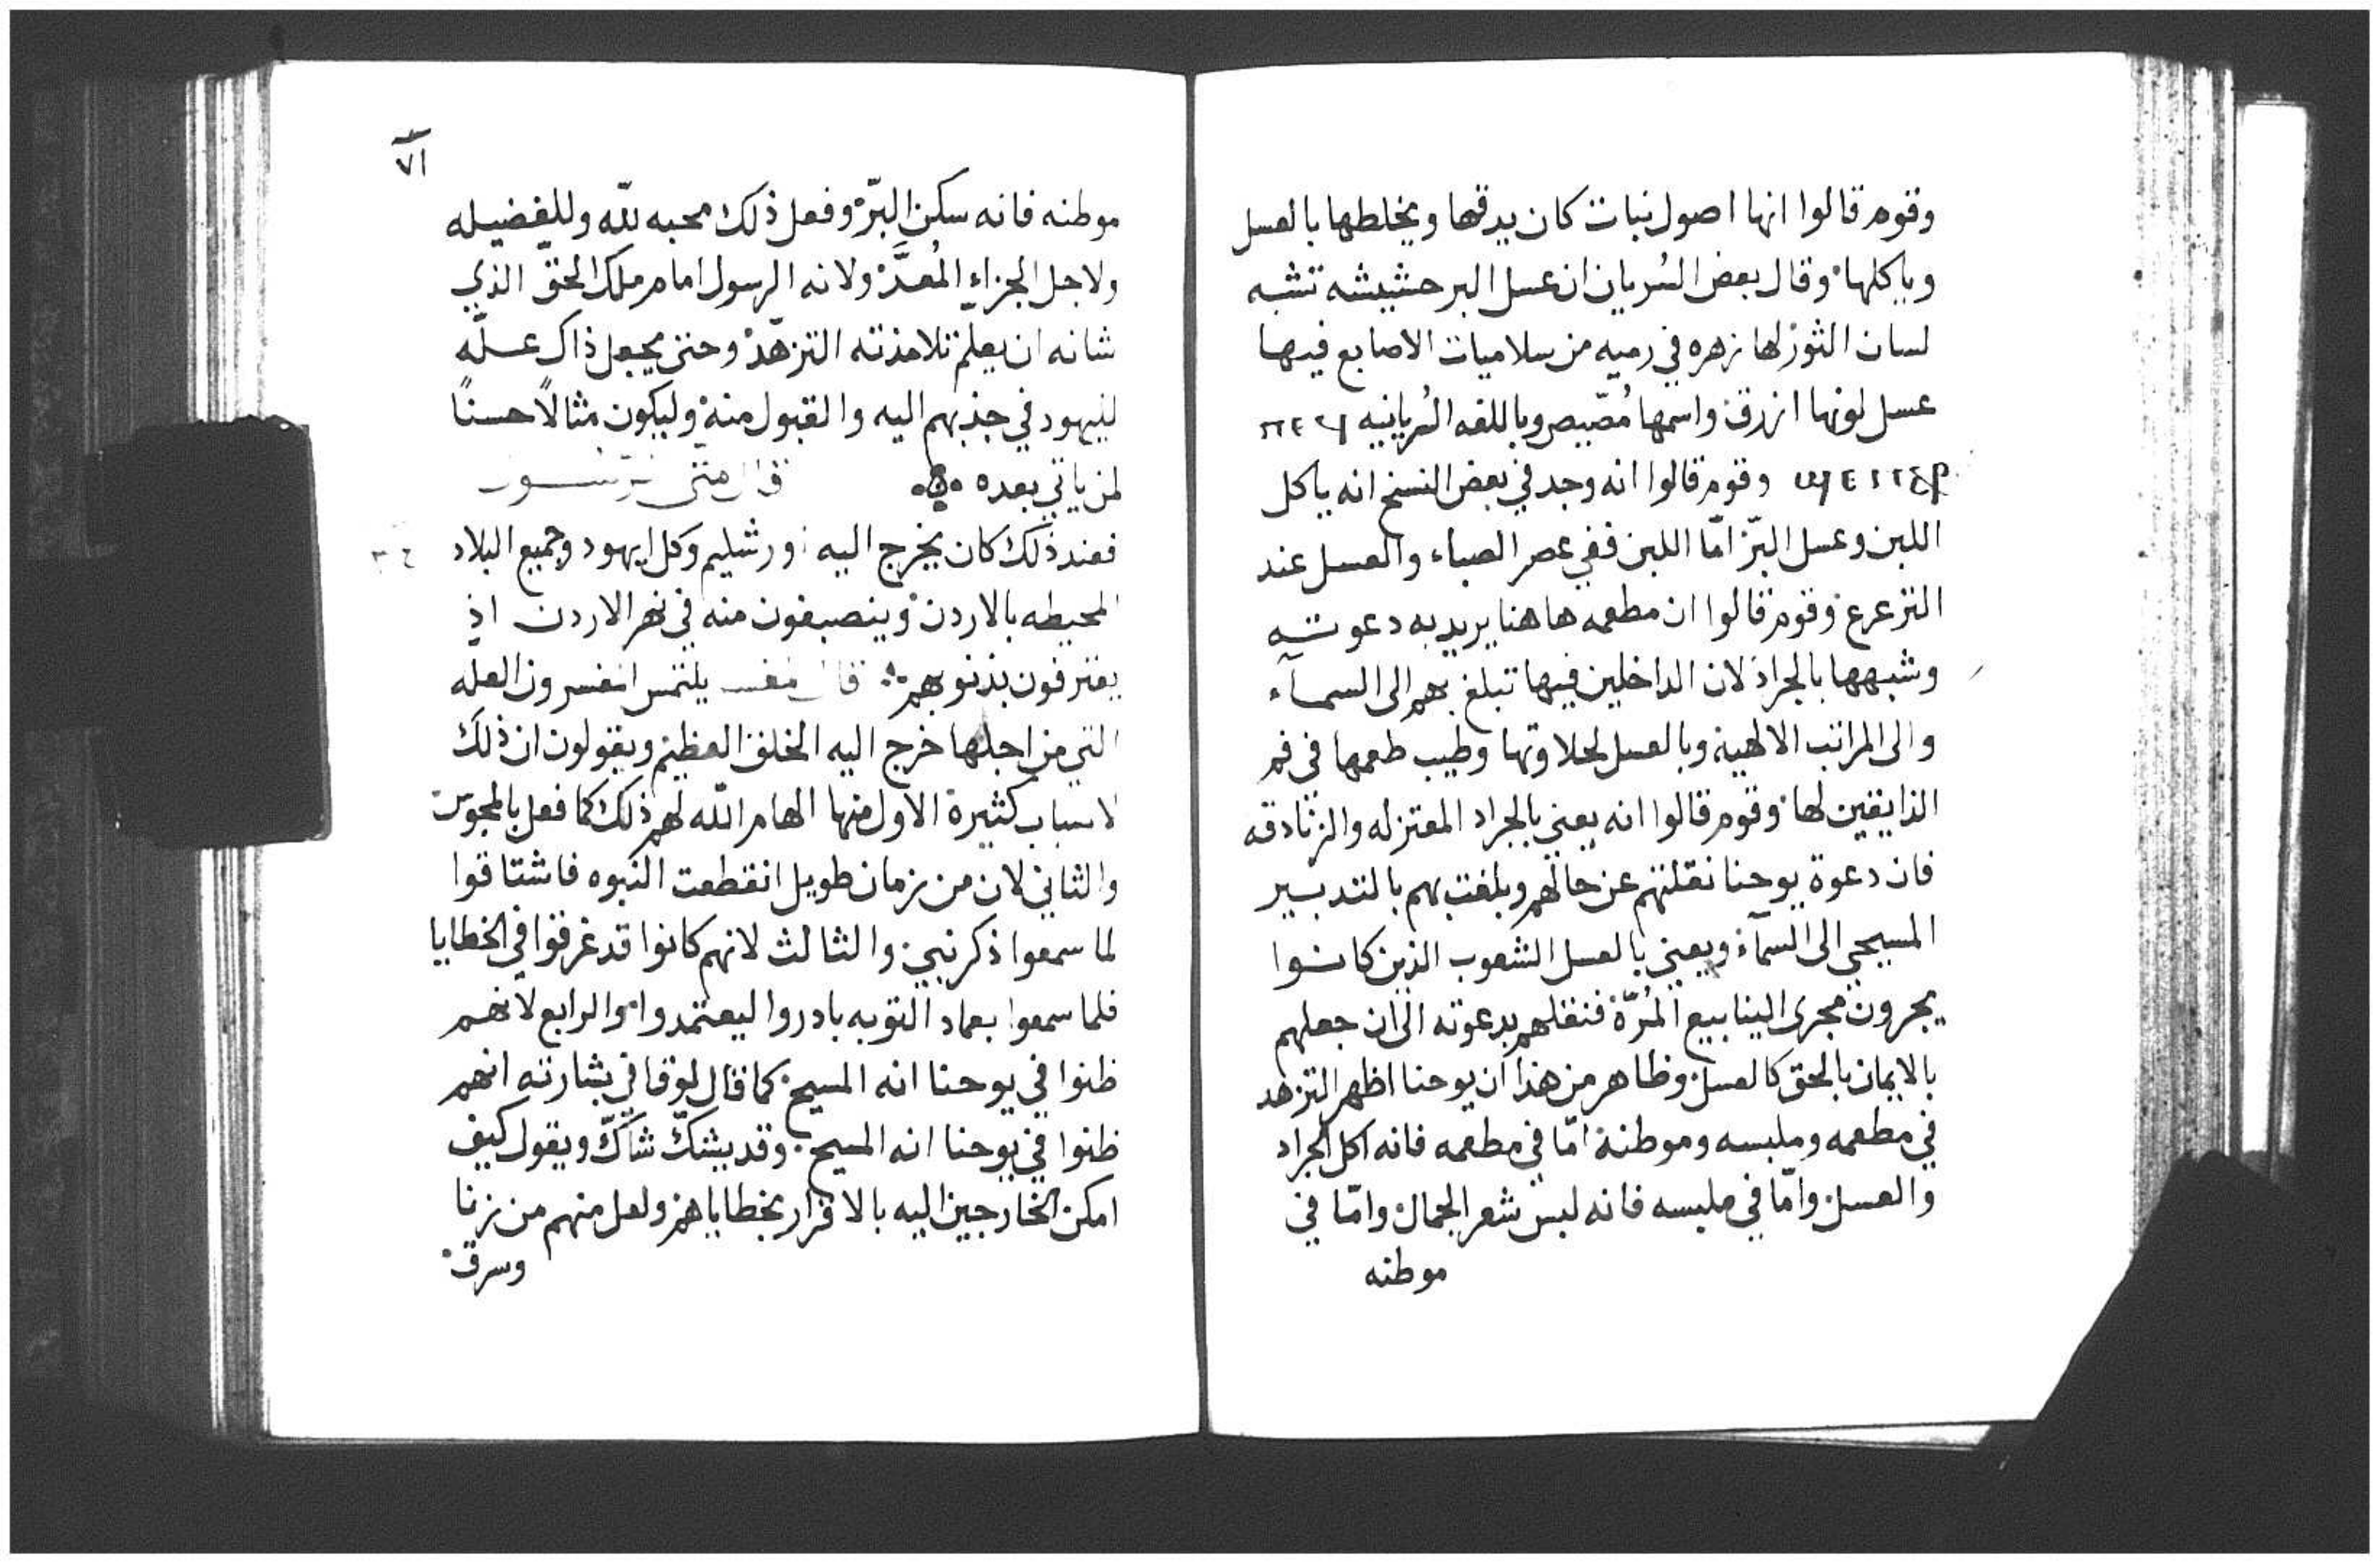 وقوم قالوا انها اصول نبات كان يدقها ويخلطها بالعسل
وياكلها وقال بعض السُريان ان عسل البر حشيشه تشبه
لسان الثور لها زهره في رميه من سلاميات الاصابع فيها
عسل لونها ازرق واسمها مُصّيص وباللغه السُريانيه
وقوم قالوا انه وجد في بعض النسخ انه ياكل
اللبن وعسل البرّ امّا اللبن ففي عصر الصباء والعسل عند
الترعرع وقوم قالوا ان مطعمه هاهنا يريد به دعوته
وشبهها بالجراد لان الداخلين فيها تبلغ بهم الى السمآء
والى المراتب الالهية وبالعسل لحلاوتها وطيب طعمها في فم
الذايقين لها وقوم قالوا انه يعني بالجراد المعتزله والزنادقه
فان دعوة يوحنا نقلتهم عن حالهم وبلغت بهم بالتدبير
المسيحي الى السمآء ويعني بالعسل الشعوب الذين كانوا
يجرون مجرى الينابيع المُرّة فنقلهم بدعوته الى ان جعلهم
بالايمان بالحق كالعسل وظاهر من هذا ان يوحنا اظهر التزهد
في مطعمه وملبسه وموطنه امّا في مطعمه فانه اكل الجراد
والعسل وامّا في ملبسه فانه لبس شعر الجمال وامّا في
موطنه
٧١
موطنه فانه سكن البرّ وفعل ذلك محبه للّه وللفضيله
ولاجل الجزاء المُعدَّ ولانه الرسول امام ملك الحق الذي
شانه ان يعلم تلامذته التزهّد وحتى يجعل ذاك علّه
لليهود في جذبهم اليه والقبول منه وليكون مثالًا حسنًا
لمن ياتي بعده قال متى
فعند ذلك كان يخرج اليه اورشليم وكل ايهود وجميع البلاد
المحيطه بالاردن وينصبغون منه في نهر الاردن اذ
يعترفون بذنوبهم قال يلتمس المفسرون العله
التي من اجلها خرج اليه الخلق العظيم ويقولون ان ذلك
لاسباب كثيرة الاول منها الهام اللّه لهم ذلك كما فعل بالمجوس
والثاني لان من زمان طويل انقطعت النبوه فاشتاقوا
لما سمعوا ذكر نبي والثالث لانهم كانوا قد غرقوا في الخطايا
فلما سمعوا بعماد التوبه بادروا ليعتمدوا والرابع لانهم
ظنوا في يوحنا انه المسيح كما قال لوقا في بشارته انهم
ظنوا في يوحنا انه المسيح وقد يشك شاكّ ويقول كيف
امكن الخارجين اليه بالاقرار بخطاياهم ولعل منهم من زنا
وسرق